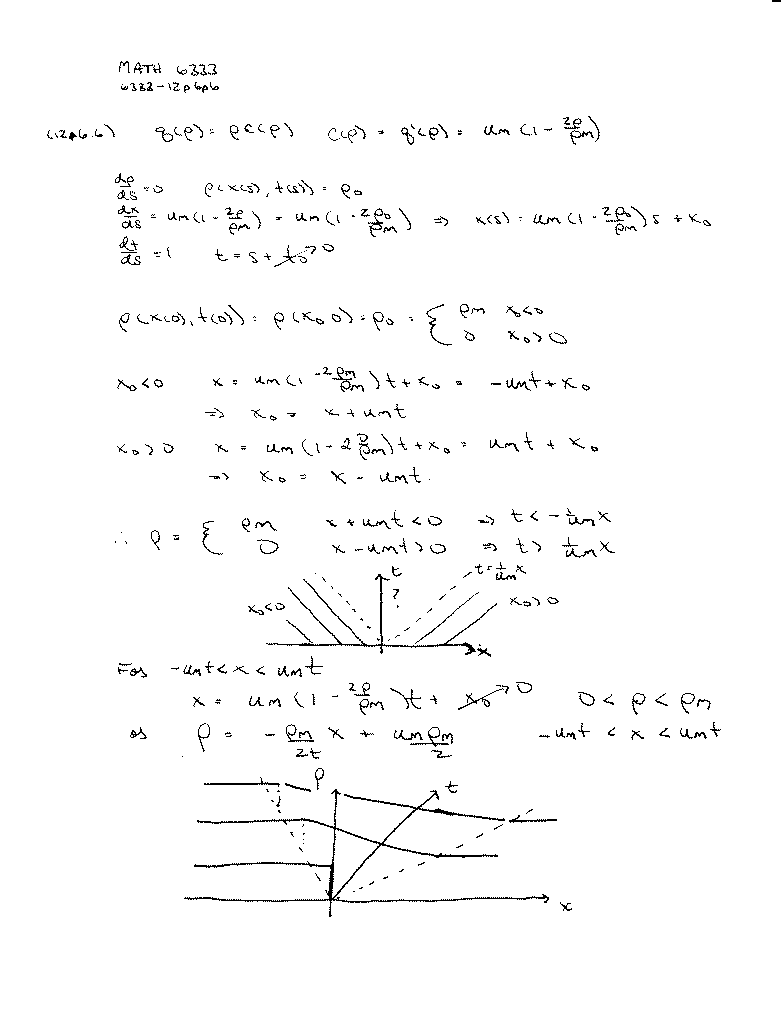 MATH 6333
6333-12p6p6
(12p6.6) q(ρ) = ρc(ρ) c(ρ) = q'(ρ) = um (1 - 2ρ/ρm)
dρ/ds = 0 ρ(x(s), t(s)) = ρ0
dx/ds = um(1 - 2ρ/ρm) = um(1 - 2ρ0/ρm) ⇒ x(s) = um(1 - 2ρ0/ρm)s + x0
dt/ds = 1 t = s + t0→0
ρ(x(0), t(0)) = ρ(x0, 0) = ρ0 = { ρm x0<0
0 x0>0
x0<0 x = um(1 - 2ρm/ρm)t + x0 = -umt + x0
⇒ x0 = x + umt
x0>0 x = um(1 - 2 0/ρm)t + x0 = umt + x0
⇒ x0 = x - umt.
∴ ρ = { ρm x + umt < 0 ⇒ t < -1/um x
0 x - umt > 0 ⇒ t > 1/um x
t t = 1/um x
?
x0<0 x0>0
x
For -umt < x < umt
x = um(1 - 2ρ/ρm)t + x0→0 0 < ρ < ρm
or ρ = -ρm/2t x + umρm/2 -umt < x < umt
ρ t
x